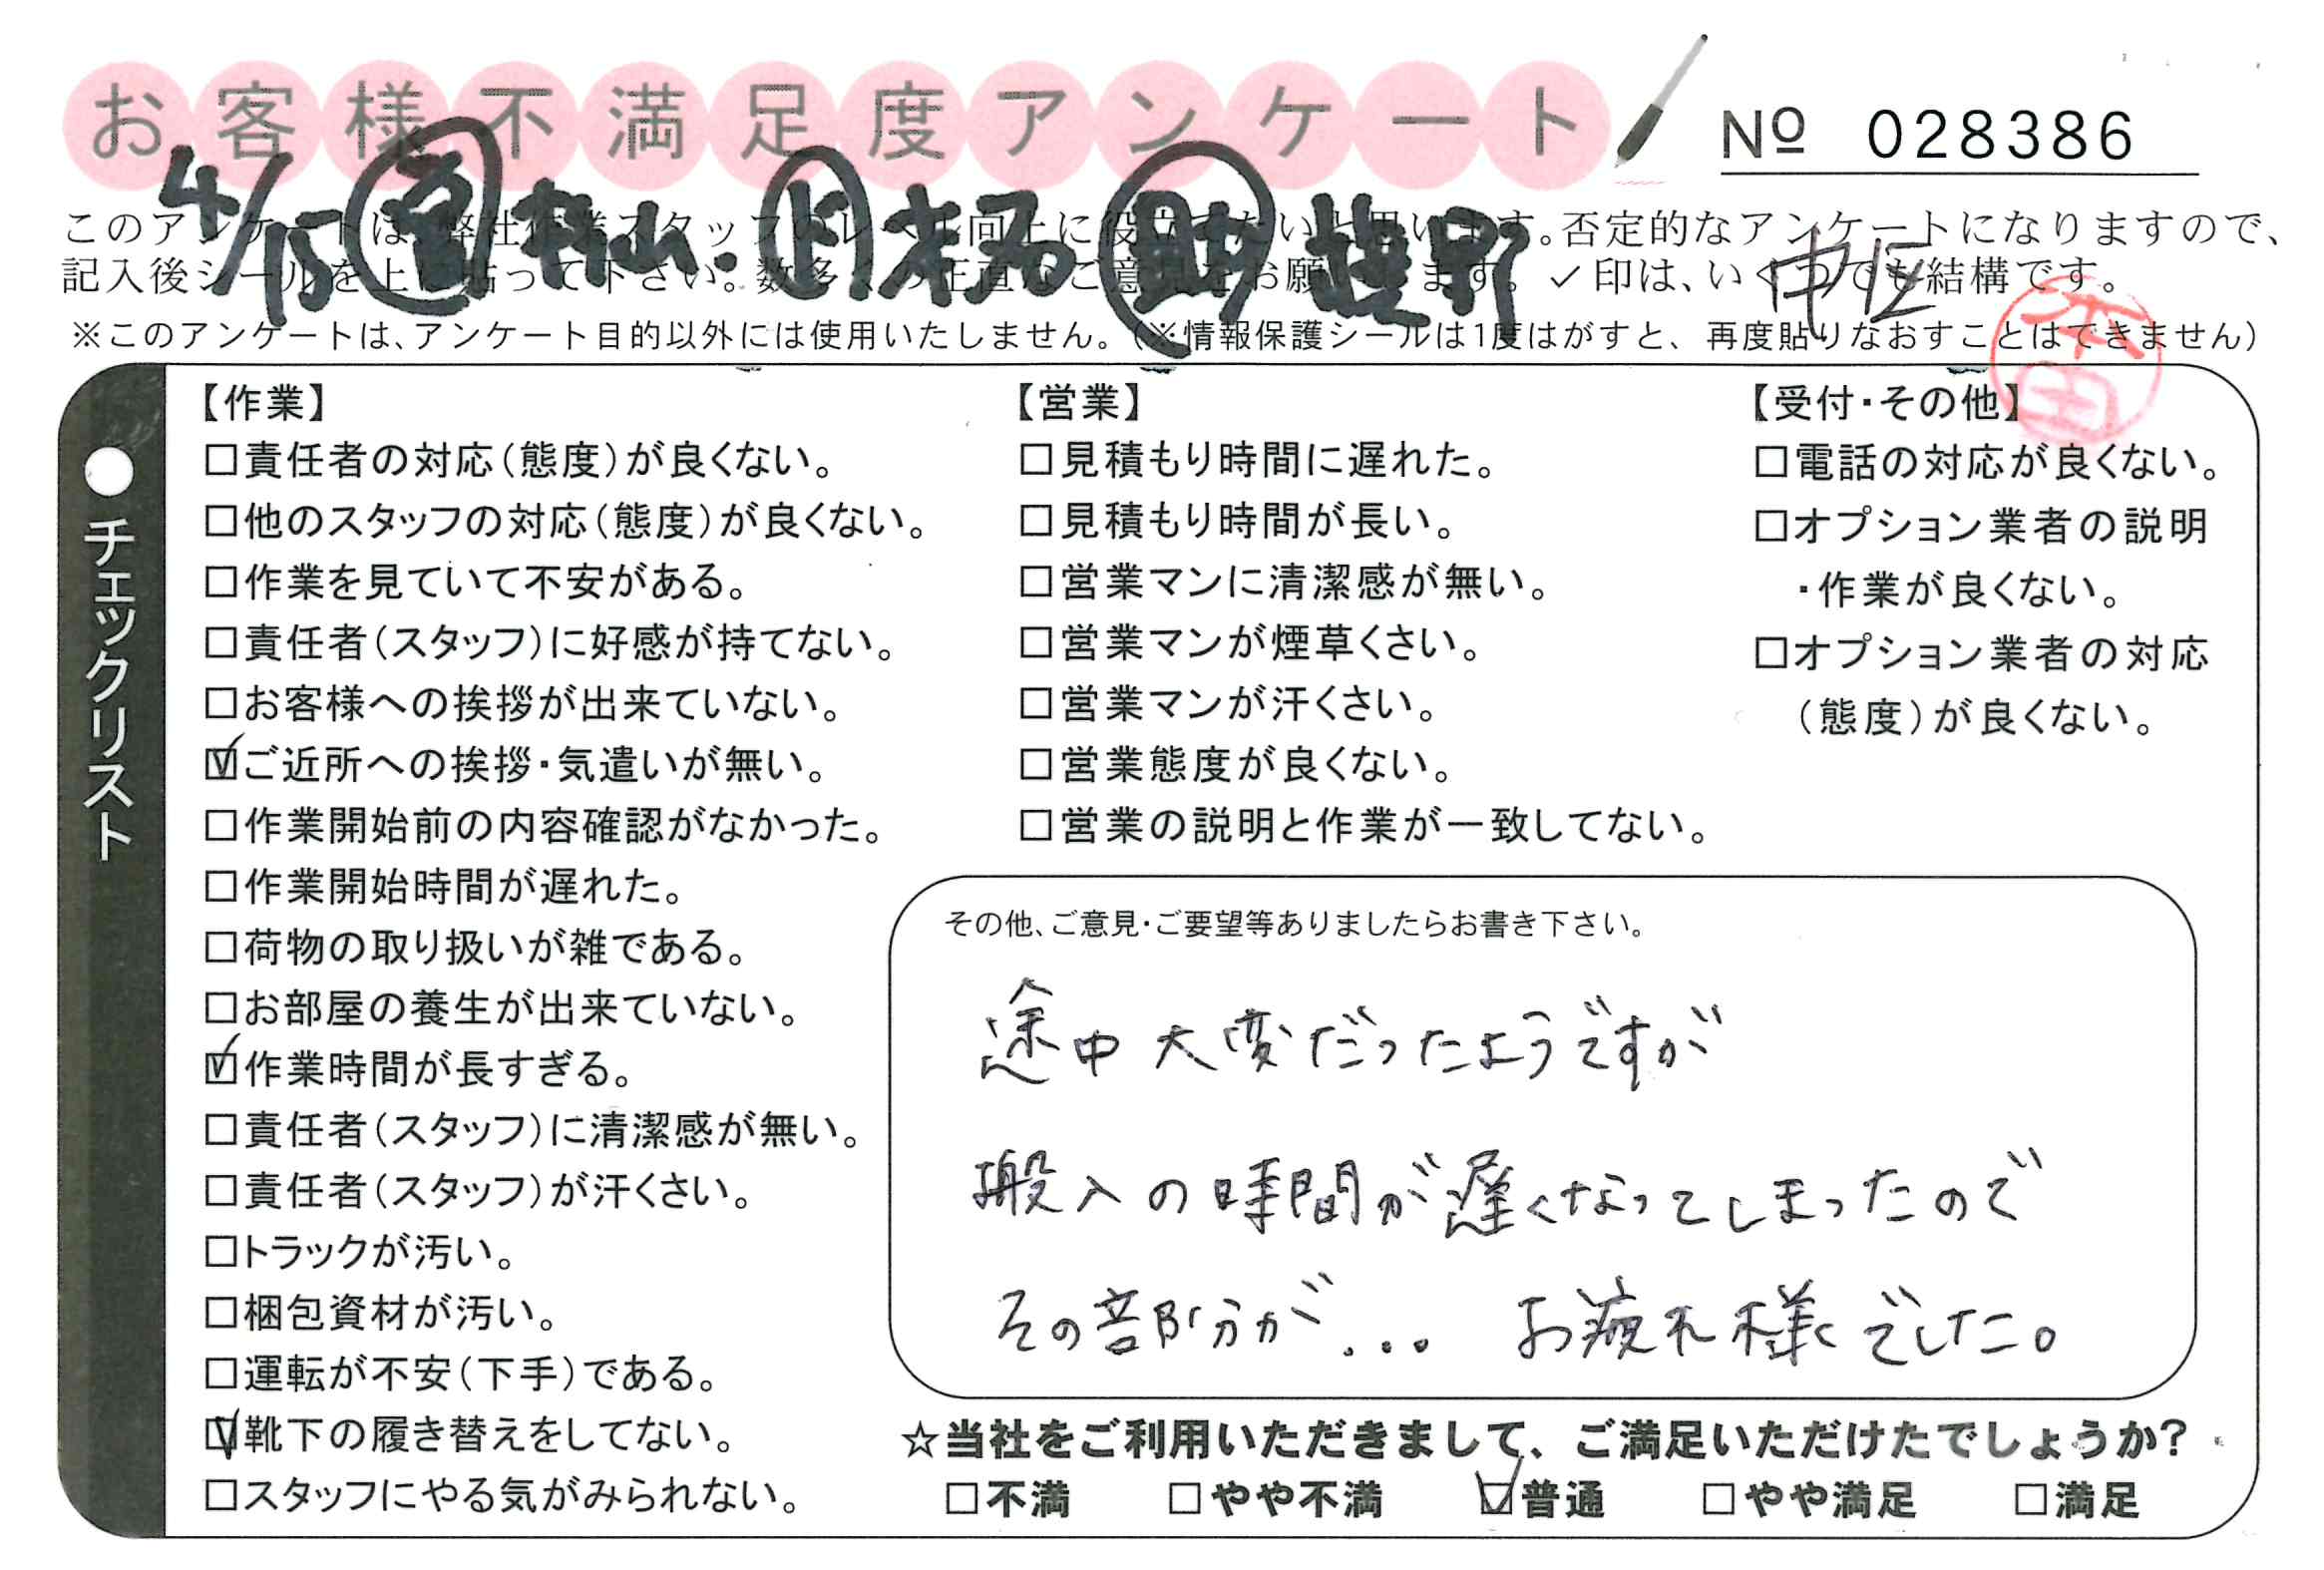 お客様不満足度アンケート
Nº 028386
4/15
このアンケートは、弊社作業スタッフのレベル向上に役立てたいと思います。否定的なアンケートになりますので、
記入後シールを上に貼って下さい。数多くの正直なご意見をお願いします。✓印は、いくつでも結構です。
中区
※このアンケートは、アンケート目的以外には使用いたしません。（※情報保護シールは1度はがすと、再度貼りなおすことはできません）
本田
●チェックリスト
【作業】
□責任者の対応（態度）が良くない。
□他のスタッフの対応（態度）が良くない。
□作業を見ていて不安がある。
□責任者（スタッフ）に好感が持てない。
□お客様への挨拶が出来ていない。
☑ご近所への挨拶・気遣いが無い。
□作業開始前の内容確認がなかった。
□作業開始時間が遅れた。
□荷物の取り扱いが雑である。
□お部屋の養生が出来ていない。
☑作業時間が長すぎる。
□責任者（スタッフ）に清潔感が無い。
□責任者（スタッフ）が汗くさい。
□トラックが汚い。
□梱包資材が汚い。
□運転が不安（下手）である。
☑靴下の履き替えをしてない。
□スタッフにやる気がみられない。
【営業】
□見積もり時間に遅れた。
□見積もり時間が長い。
□営業マンに清潔感が無い。
□営業マンが煙草くさい。
□営業マンが汗くさい。
□営業態度が良くない。
□営業の説明と作業が一致してない。
【受付・その他】
□電話の対応が良くない。
□オプション業者の説明
・作業が良くない。
□オプション業者の対応
（態度）が良くない。
その他、ご意見・ご要望等ありましたらお書き下さい。
途中大変だったようですが
搬入の時間が遅くなってしまったので
その部分が... お疲れ様でした。
☆当社をご利用いただきまして、ご満足いただけたでしょうか?
□不満 □やや不満 ☑普通 □やや満足 □満足